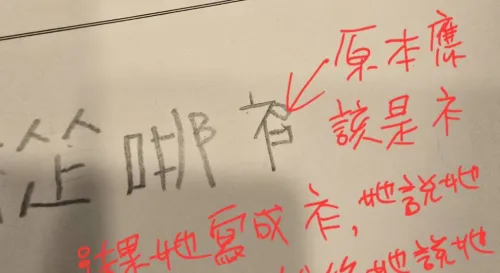 從哪
原本應
該是衤
結果她寫成,她說她
她說她